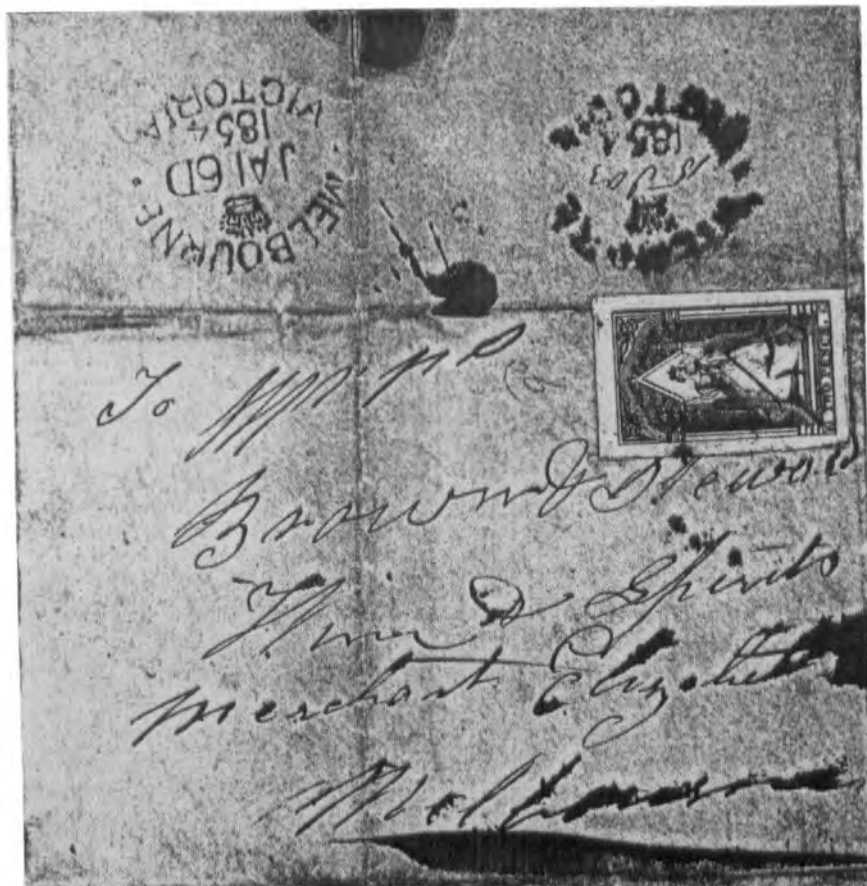 MELBOURNE
JA 16 D
1854
VICTORIA
1854
VICTORIA
To
Brown & Stewart
Wine & Spirits
Merchant Elizabeth
Melbourne